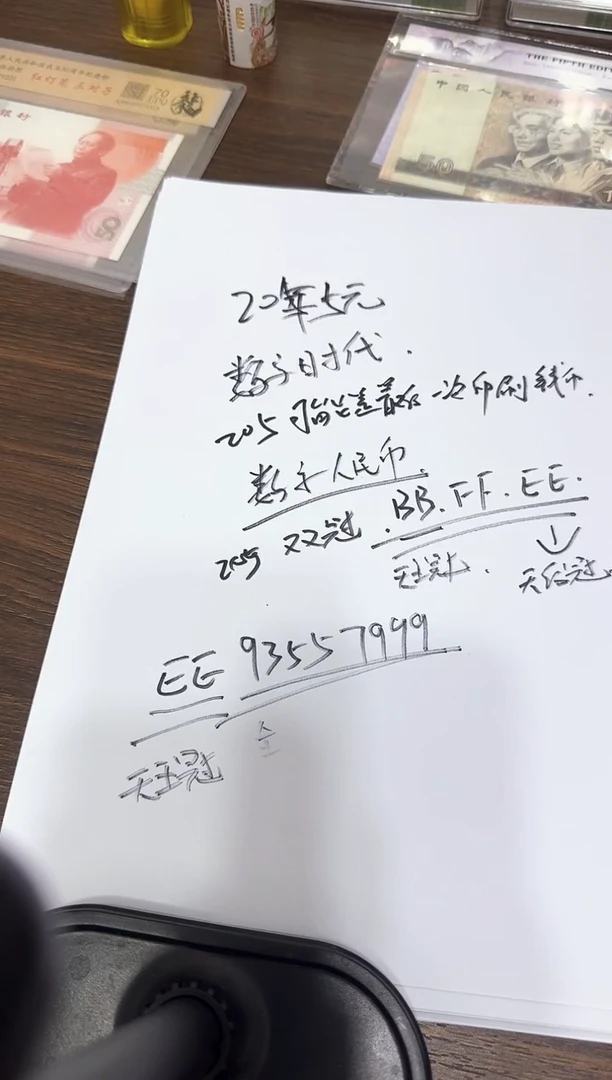 红灯笼 五对号
70
THE FIFTH EDI
中国人民银行
50
50
20年5元
数字时代.
205 最后一次印刷钱币.
数字人民币.
205 双冠.BB.FF.EE.
天王冠. 天后冠.
EE 93557999
天王冠 全